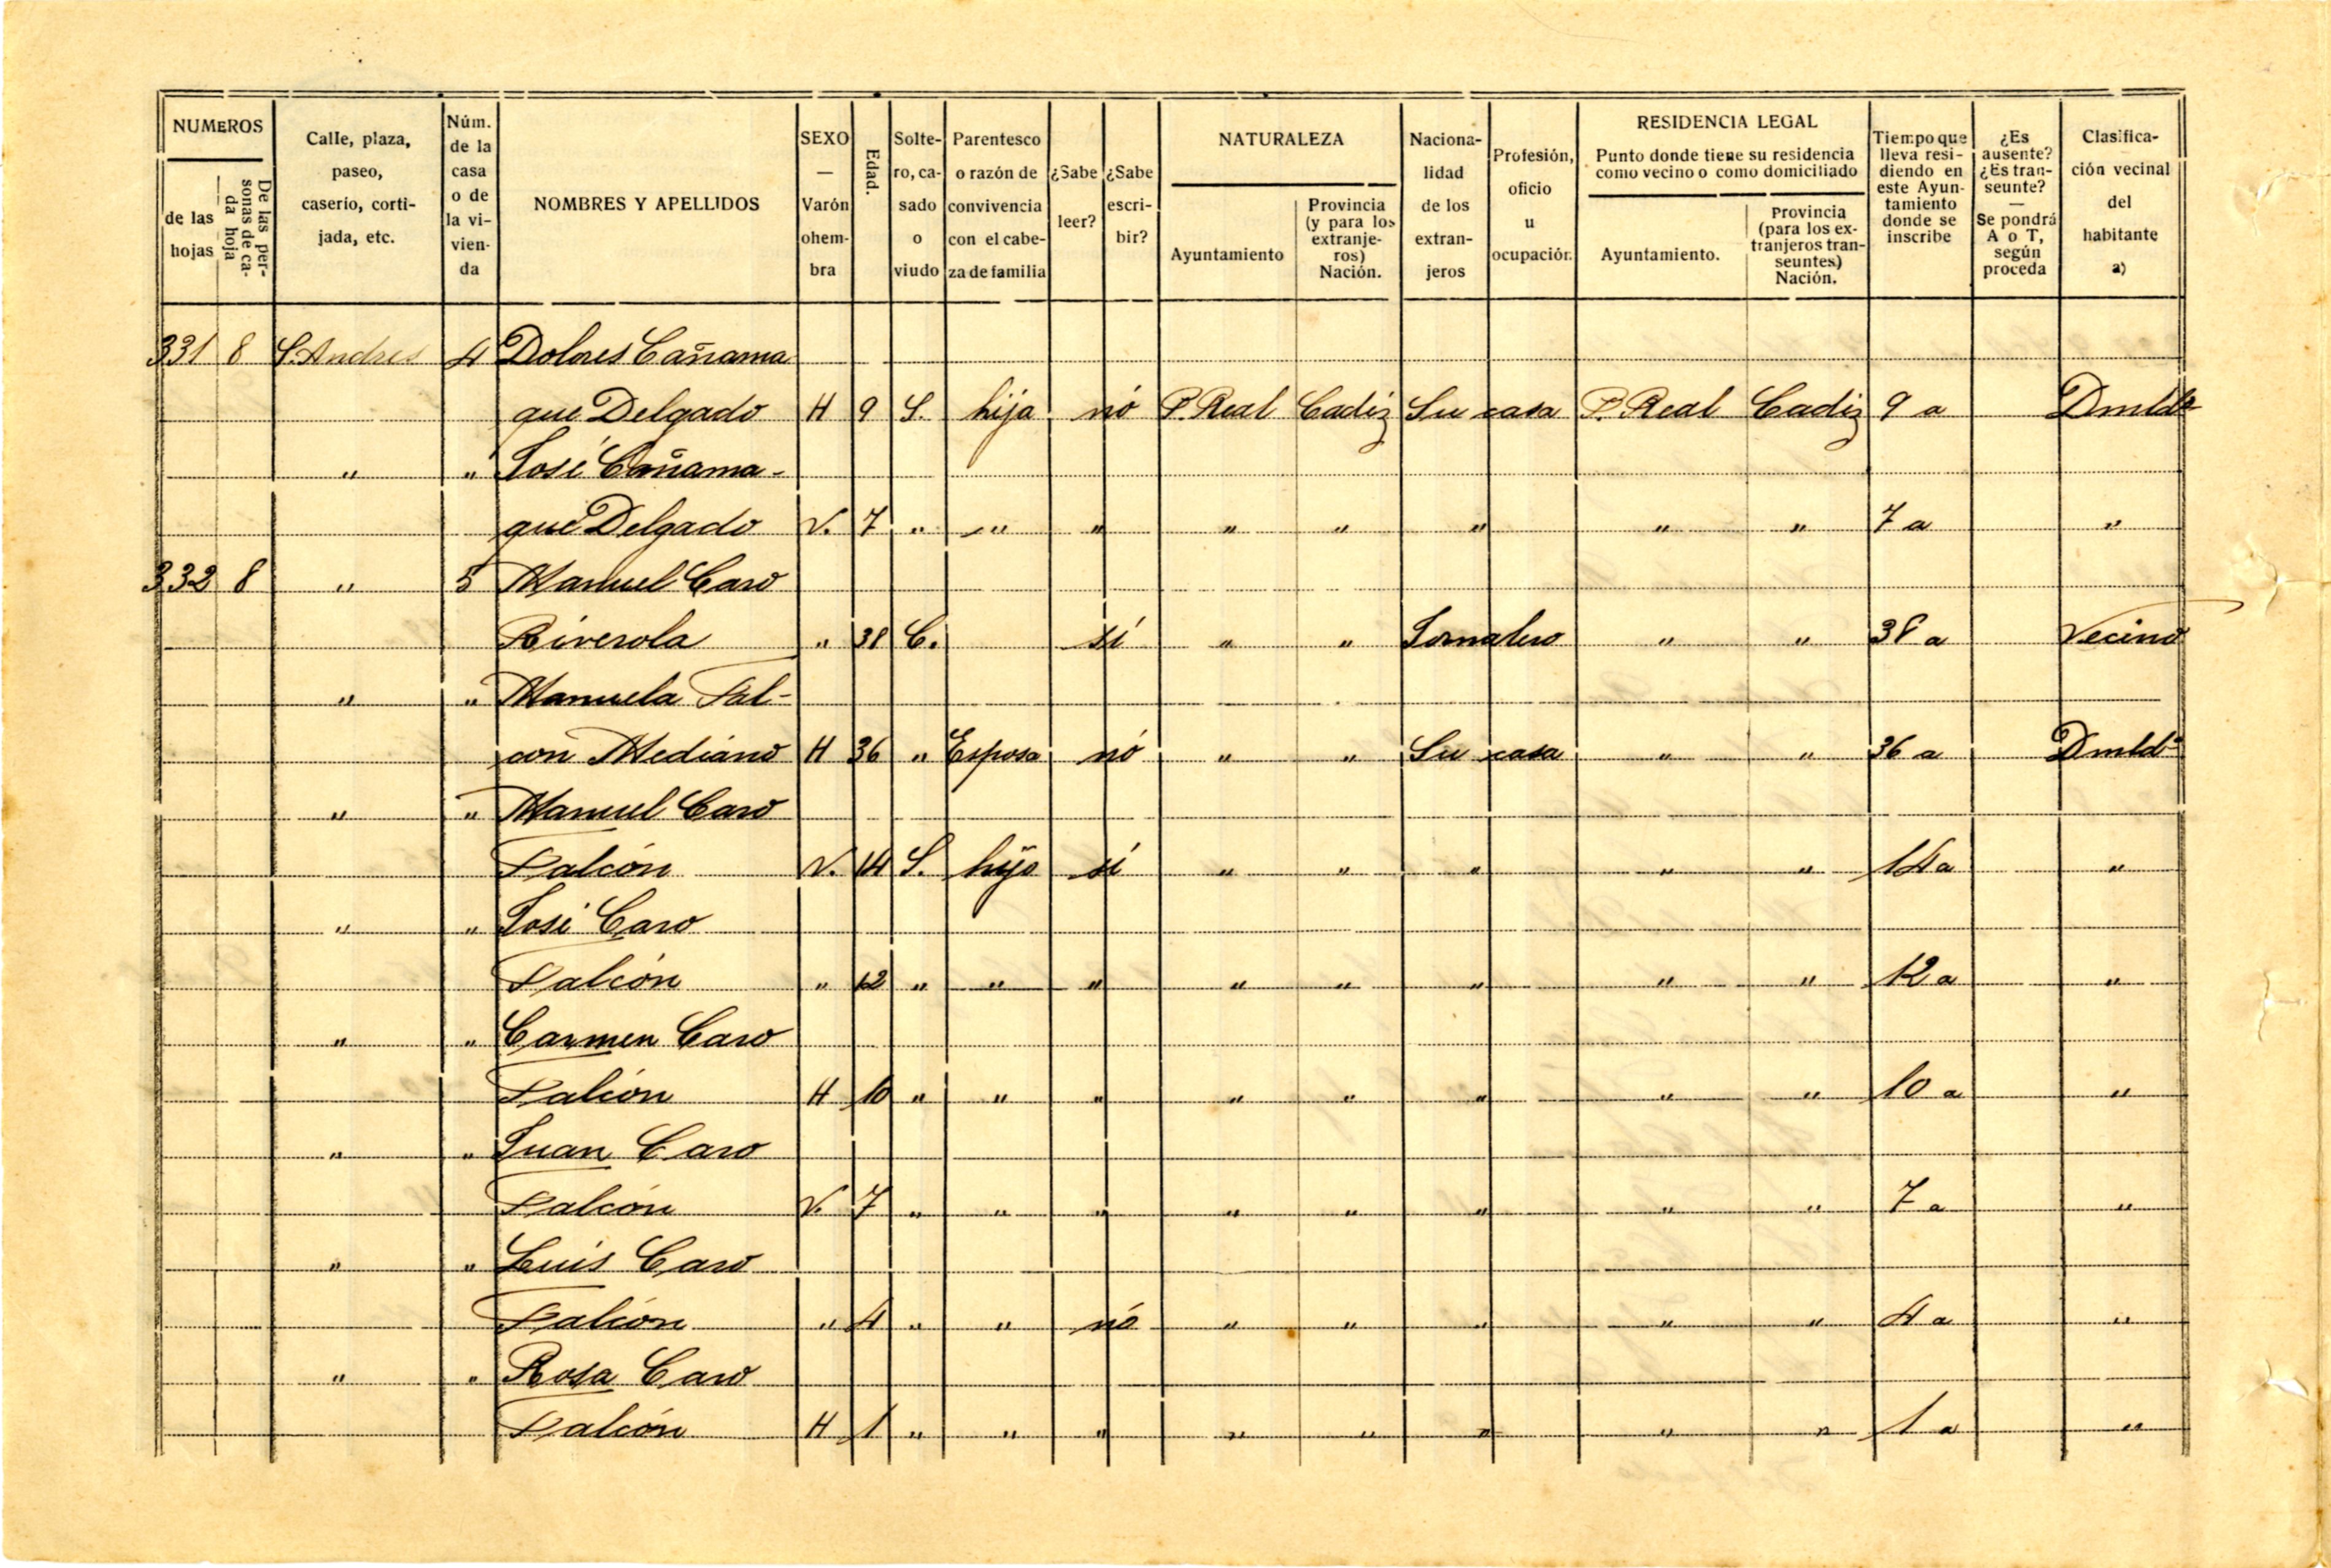 NUMEROS
de las hojas
De las personas de cada hoja
Calle, plaza, paseo, caserío, cortijada, etc.
Núm. de la casa o de la vivienda
NOMBRES Y APELLIDOS
SEXO — Varón o hembra
Edad.
Soltero, casado o viudo
Parentesco o razón de convivencia con el cabeza de familia
¿Sabe leer?
¿Sabe escribir?
NATURALEZA
Ayuntamiento
Provincia (y para los extranjeros) Nación.
Nacionalidad de los extranjeros
Profesión, oficio u ocupación.
RESIDENCIA LEGAL
Punto donde tiene su residencia como vecino o como domiciliado
Ayuntamiento.
Provincia (para los extranjeros transeuntes) Nación.
Tiempo que lleva residiendo en este Ayuntamiento donde se inscribe
¿Es ausente? ¿Es transeunte? — Se pondrá A o T, según proceda
Clasificación vecinal del habitante a)
331 8 S. Andres 4 Dolores Cañama
que Delgado H 9 S. hija nó P. Real Cadiz Su casa P. Real Cadiz 9 a Dmldª
" " José Cañama-
que Delgado V. 7 " " " " " " " " 7 a "
332 8 " 5 Manuel Caro
Riverola " 38 C. sí " " Jornalero " " 38 a Vecino
" " Manuela Fal-
con Mediano H 36 " Esposa nó " " Su casa " " 36 a Dmldª
" " Manuel Caro
Falcón V. 14 S. hijo sí " " " " " 14 a "
" " José Caro
Falcón " 12 " " " " " " " " 12 a "
" " Carmen Caro
Falcón H 10 " " " " " " " " 10 a "
" " Juan Caro
Falcón V. 7 " " " " " " " " 7 a "
" " Luis Caro
Falcón " 4 " " nó " " " " " 4 a "
" " Rosa Caro
Falcón H 1 " " " " " " " " 1 a "